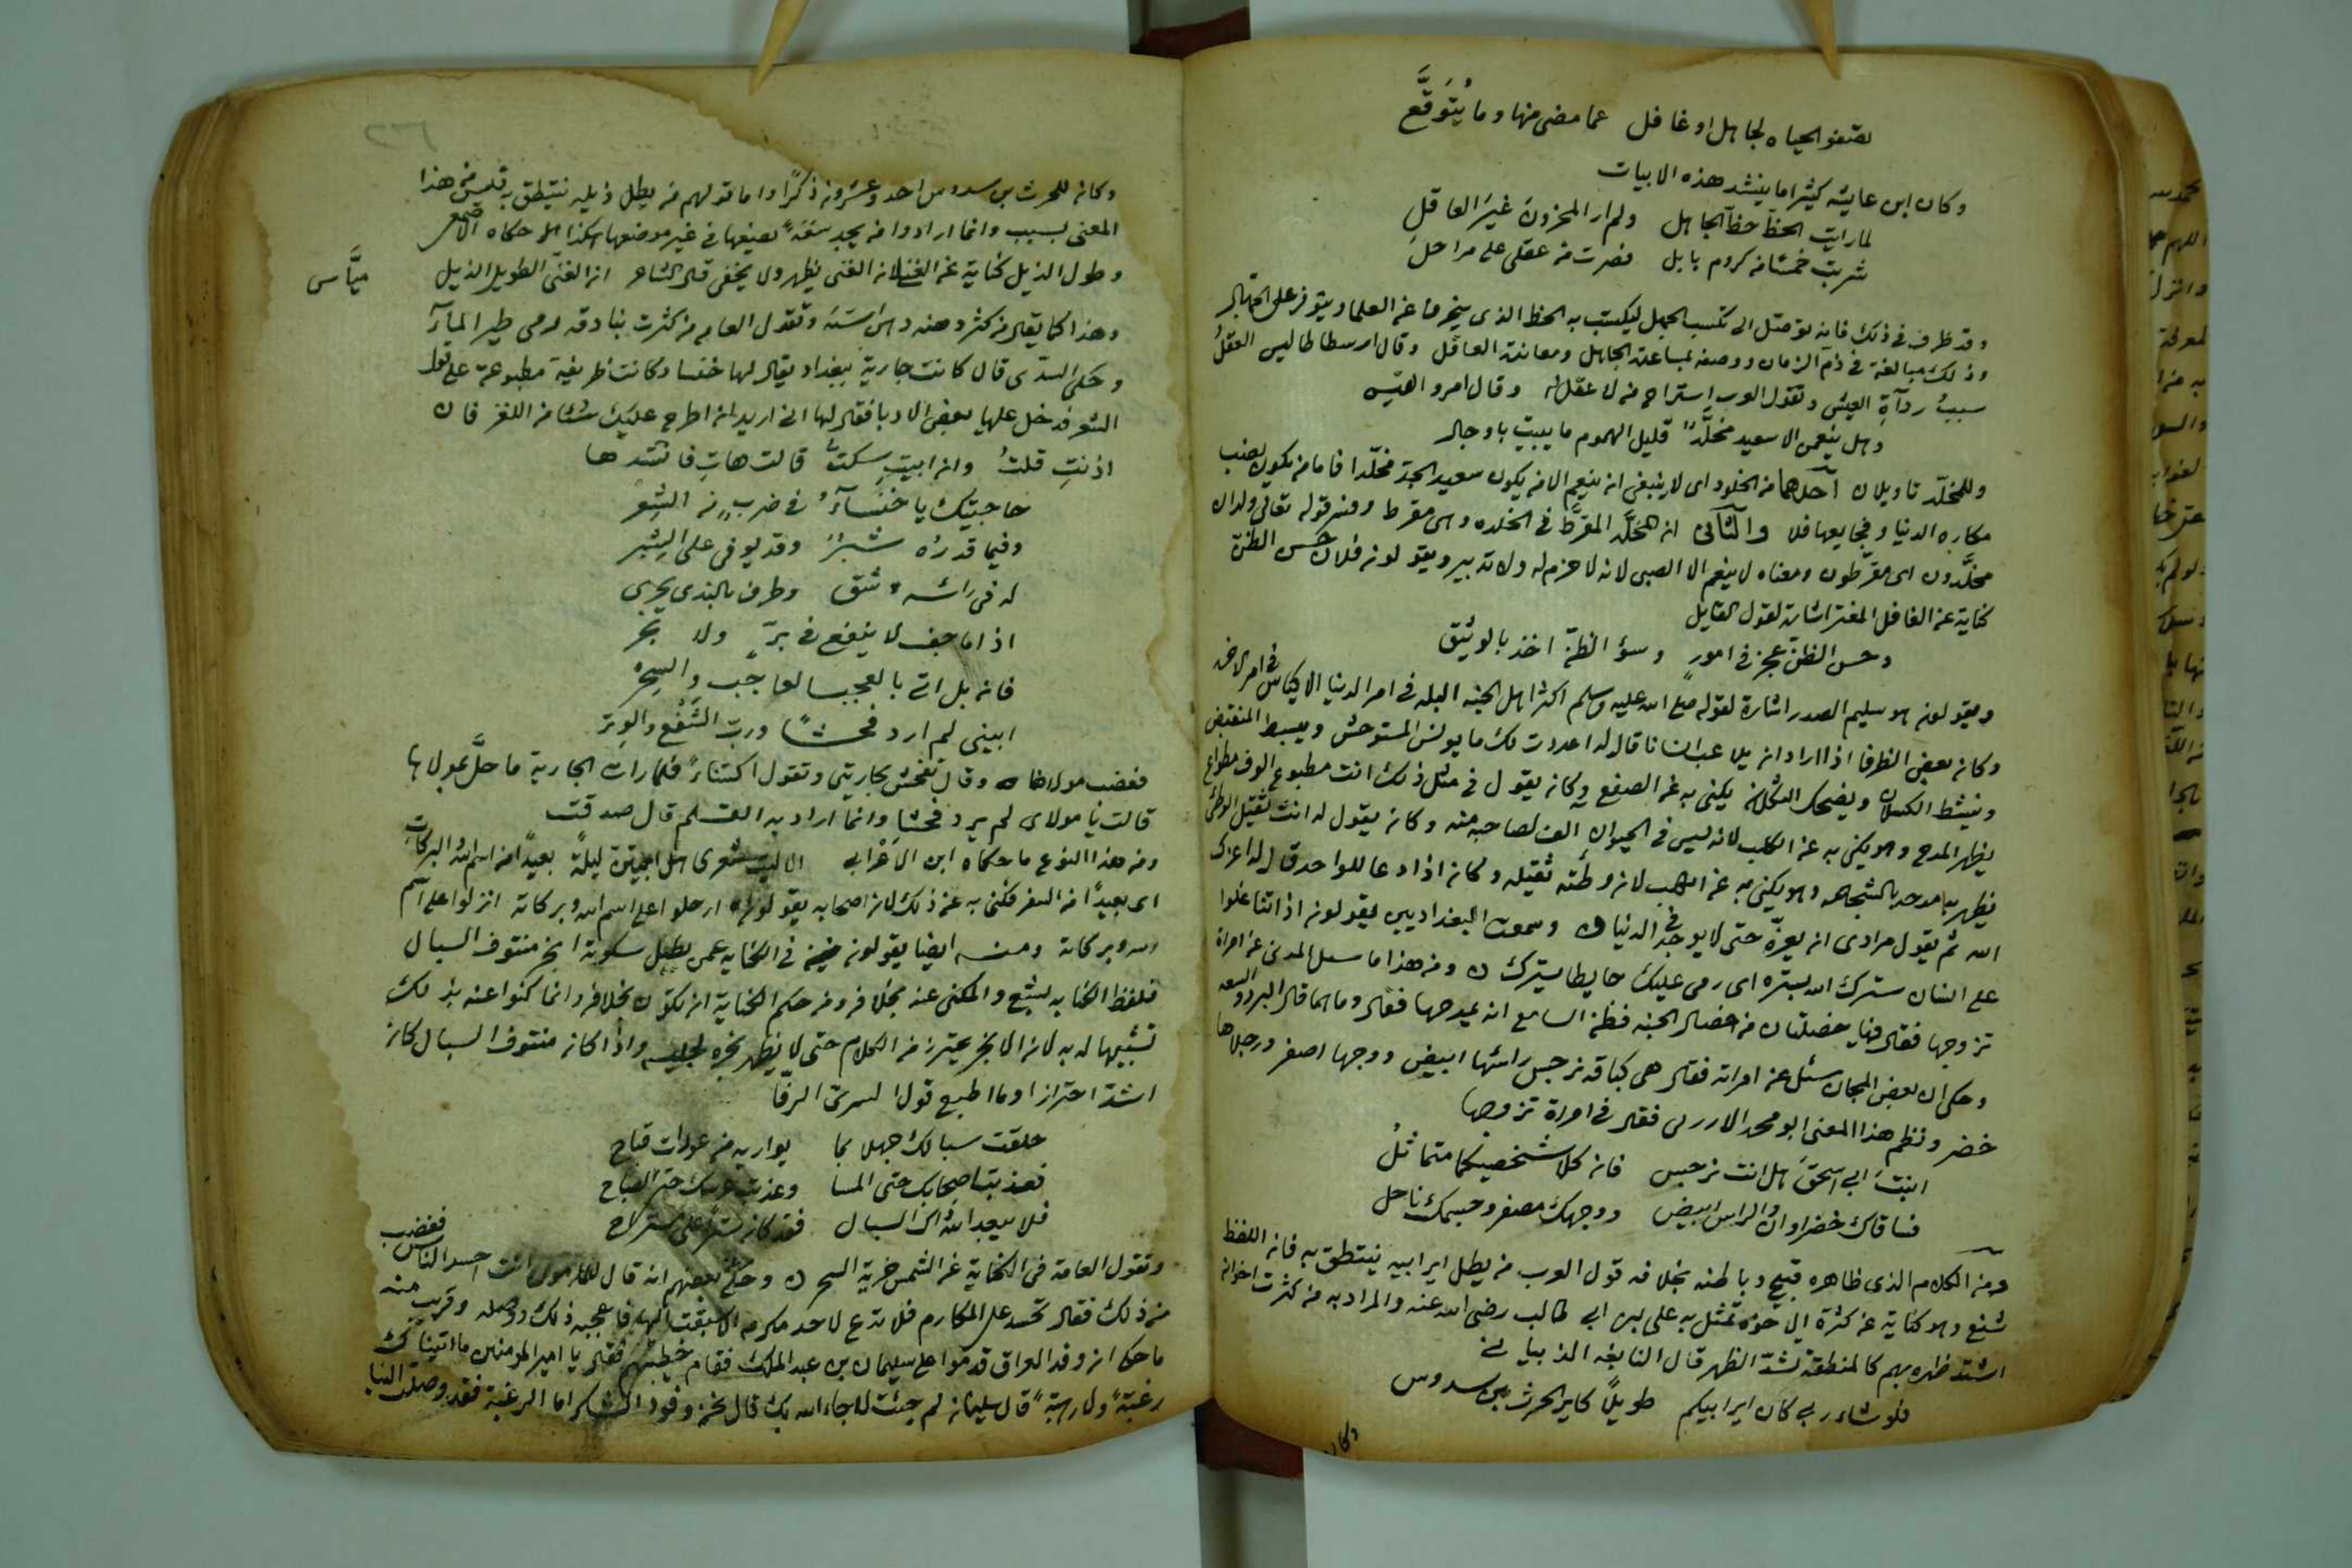 تصفو الحياه لجاهل او غافل عما مضى منها وما يُتَوَقَّع
وكان ابن عايشه كثيرا ما ينشد هذه الابيات
لما رايت الحظ حظ الجاهل ولم ار المحزون غير العاقل
شربت خمسا من كروم بابل فصرت من عقلى على مراحل
وقد ظرف فى ذلك فانه توصل الى تكسب الجهل ليكتسب به الحظ الذى ينحرف عن العلما ويتوفر على الجهال
وذلك مبالغة فى ذم الزمان ووصفه بمساعدة الجاهل ومعاندة العاقل وقال ارسطاطاليس العقل
سبب رداة العيش وتقول العرب استراح من لا عقل له وقال امرو القيس
وهل ينعمن الا سعيد مخلّد قليل الهموم ما يبيت باوجال
وللمخلّد تاويلان احدهما من الخلود اى لا ينبغى ان ينعم الا من يكون سعيد الجد مخلّدا فاما من يكون نصب
مكاره الدنيا وفجايعها فلا والثانى ان المخلّد المقرّط فى الخلده وهى مقرط ومنه قوله تعالى ولدان
مخلّدون اى مقرّطون ومعناه لا ينعم الا الصبى لانه لا حزم له ولا تدبير ويقولون فلان حسن الظن
كناية عن الغافل المغتر اشارة لقول القايل
وحسن الظن عجز فى امور وسؤ الظن اخذ بالوثيق
ويقولون هو سليم الصدر اشارة لقوله صلى الله عليه وسلم اكثر اهل الجنه البله فى امر الدنيا الاكياس فى امر الاخره
وكان بعض الظرفا اذا اراد ان يلاعب انسانا قال له اعددت لك ما يونس المستوحش ويبسط المنقبض
وينشط الكسلان ويضحك الثكلان يكنى به عن الصفع وكان يقول فى مثل ذلك انت مطبوع الوف مطواع
يظهر المدح وهو يكنى به عن الكلب لانه ليس فى الحيوان الف لصاحبه منه وكان يقول له انت ثقيل الوطئ
يظهر به مدحه بالشجاعه وهو يكنى به عن لان وطئته ثقيله وكان اذا دعا للواحد قال له اعزك
الله ثم يقول مرادى ان يعزّه حتى لا يوجد فى الدنيا وسمعت البغداديين يقولون اذا اثنا علوا
على انسان سترك الله بستره اى رمى عليك حايطا يسترك ومن هذا ما سيل المدنى عن امراة
تزوجها فقال فيها خصلتان من خصال الجنه فظن السامع انه يمدحها فقال وما هما قال البرد والسعه
وحكى ان بعض المجان سئل عن امراته فقال هى كباقة نرجس راسها ابيض ووجها اصفر ورجلاها
خضر ونظم هذا المعنى ابو محمد فقال فى امراة تزوجها
ابنت ابى اسحق هل انت نرجس فان كلا شخصيكما متماثل
فساقاك خضراوان والراس ابيض ووجهك مصفر وجسمك ناحل
ومن الكلام الذى ظاهره قبيح وباطنه بخلافه قول العرب من يطل اير ابيه ينتطق به فان اللفظ
شنع وهو كناية عن كثرة الاخوه تمثل به على بن ابى طالب رضى الله عنه والمراد به من كثرت اخوانه
اشتد ظهره بهم كالمنطقة تشدّ الظهر قال النابغه الذبيانى
فلو شاء ربى كان اير ابيكم طويلاً كاير الحرث بن سدوس
وكان
٢٣٦
وكان للحرث بن سدوس احد وعشرون ذكراً واما قولهم من يطل ذيله ينتطق به فليس من هذا
المعنى بسبب وانما ارادوا من يجد سعَة يضعها فى غير موضعها هكذا حكاه الاصمعى
وطول الذيل كناية عن الغنى لان الغنى يظهر ولا يخفى قال الشاعر ان الغنى الطويل الذيل ميّاس
وهذا كما يقال من كثر دهنه دهن استه وتقول العامه من كثرت بنادقه رمى طير المآ
وحكى السدى قال كانت جارية ببغداد يقال لها خنسا وكانت ظريفة مطبوعة على قول
الشعر فدخل عليها بعض الادبا فقال لها انى اريد ان اطرح عليك شئا من اللغز فان
اذنتِ قلتُ وان ابيتِ سكتُ قالت هاتِ فانشدها
حاجيتك يا خنساءُ فى ضربٍ من الشِعر
وفيما قدره شبرٌ وقد يوفى على الشبر
له فى راسه شق وطرف بالندى يجرى
اذا ما جف لا ينفع فى برّ ولا بحر
فان بل اتى بالعجب العاجب والسحر
ابينى لم ارد فحشاً وربّ الشَفْع والوتر
فغضب مولاها وقال تفحش بجاريتى وتقول اكتناءً فلما رات الجارية ما حلّ بمولاها
قالت يا مولاى لم يرد فحشا وانما اراد به القلم قال صدقت
ومن هذا النوع ما حكاه ابن الاعرابى الا ليت شعرى هل ابيتن ليلة بعيداً من اسم الله والبركات
اى بعيداً من السفر فكنى به عن ذلك لان اصحابه يقولون ارحلوا على اسم الله وبركاته انزلوا على اسم
الله وبركاته ومنه ايضا يقولون فى الكنايه عمن يطيل سكوته ابخر منتوف السبال
فلفظ الكنايه بشع والمكنى عنه بخلافه ومن حكم الكناية ان تكون بخلافه وانما كنوا عنه بذلك
تشبيها له به لان الابخر يحترز من الكلام حتى لا يظهر بخره لجليسه واذا كان منتوف السبال كان
اشد احترازا وما اطبع قول السرى الرفّا
حلقت سبالك جهلا بما يواريه من عورات قباح
فعذبت اصحابك حتى المسا وعذبت عرسك حتى الصباح
فلا يبعد الله ذاك السبال فقد كان ستراً على مستراح
وتقول العامة فى الكناية عن الشمس ضرة السحر وحكى بعضهم انه قال للمامون انت احسد الناس فغضب
من ذلك فقال تحسد على المكارم فلا تدع لاحد مكرمه الا سبقت اليها فاعجبه ذلك ووصله وقريب منه
ما حكى ان وفد العراق قدموا على سليمان بن عبد الملك فقام خطيبهم فقال يا امير المومنين ما اتيناك
رغبةً ولا رهبةً قال سليمان لم جئت لا جاء الله بك قال نحن وفود الشكر اما الرغبة فقد وصلت الينا